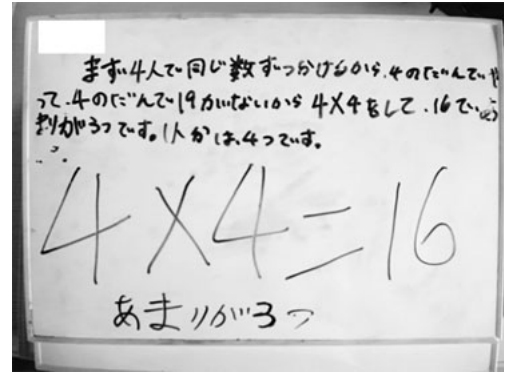 まず4人で同じ数ずつ分けるから、4のだんでや
って、4のだんで19がないから4×4をして、16で、あま
りが3つです。1人分は、4つです。
4×4=16
あまりが3つ